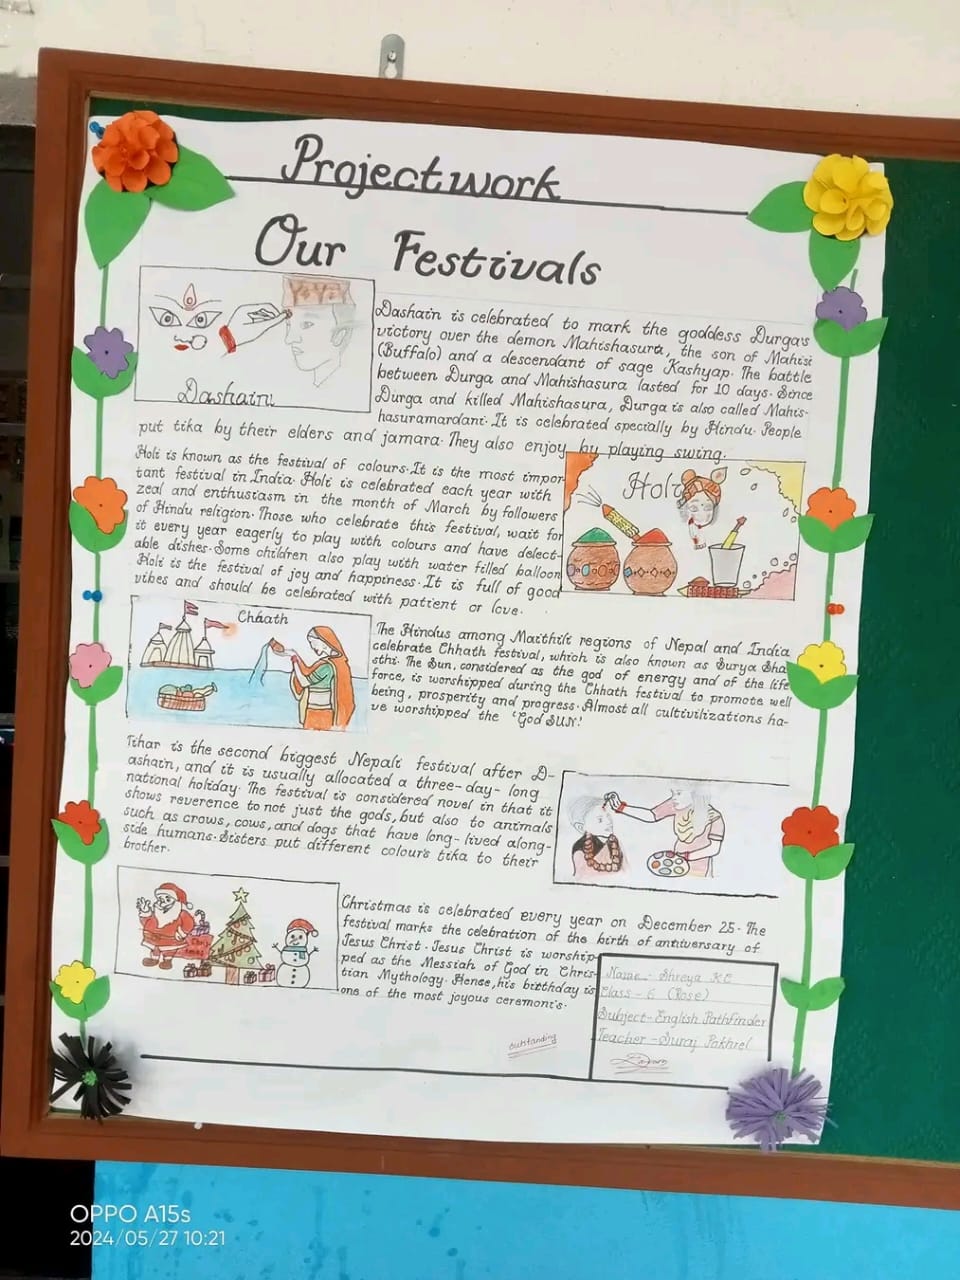 Project work
Our Festivals
Dashain
Dashain is celebrated to mark the goddess Durga's
victory over the demon Mahishasura, the son of Mahisi
(Buffalo) and a descendant of sage Kashyap. The battle
between Durga and Mahishasura lasted for 10 days. Since
Durga and killed Mahishasura, Durga is also called Mahis-
hasuramardani. It is celebrated specially by Hindu. People
put tika by their elders and jamara. They also enjoy by playing swing.
Holi is known as the festival of colours. It is the most impor
tant festival in India. Holi is celebrated each year with
zeal and enthusiasm in the month of March by followers
of Hindu religion. Those who celebrate this festival, wait for
it every year eagerly to play with colours and have delect-
able dishes. Some children also play with water filled balloon
Holi is the festival of joy and happiness. It is full of good
vibes and should be celebrated with patient or love.
Holi
Chhath
The Hindus among Maithili regions of Nepal and India
celebrate Chhath festival, which is also known as Surya Sha
sthi. The Sun, considered as the god of energy and of the life
force, is worshipped during the Chhath festival to promote well
being, prosperity and progress. Almost all cultivilizations ha-
ve worshipped the 'God SUN.'
Tihar is the second biggest Nepali festival after D-
ashain, and it is usually allocated a three-day-long
national holiday. The festival is considered novel in that it
shows reverence to not just the gods, but also to animals
such as crows, cows, and dogs that have long-lived along-
side humans. Sisters put different colour's tika to their
brother.
Christmas is celebrated every year on December 25. The
festival marks the celebration of the birth of anniversary of
Jesus Christ. Jesus Christ is worship-
ped as the Messiah of God in Chris-
tian Mythology. Hence, his birthday is
one of the most joyous ceremonis.
outstanding
Name - Shreya KC
Class - 6 (Rose)
Subject - English Pathfinder
Teacher - Suraj Pokhrel
OPPO A15s
2024/05/27 10:21